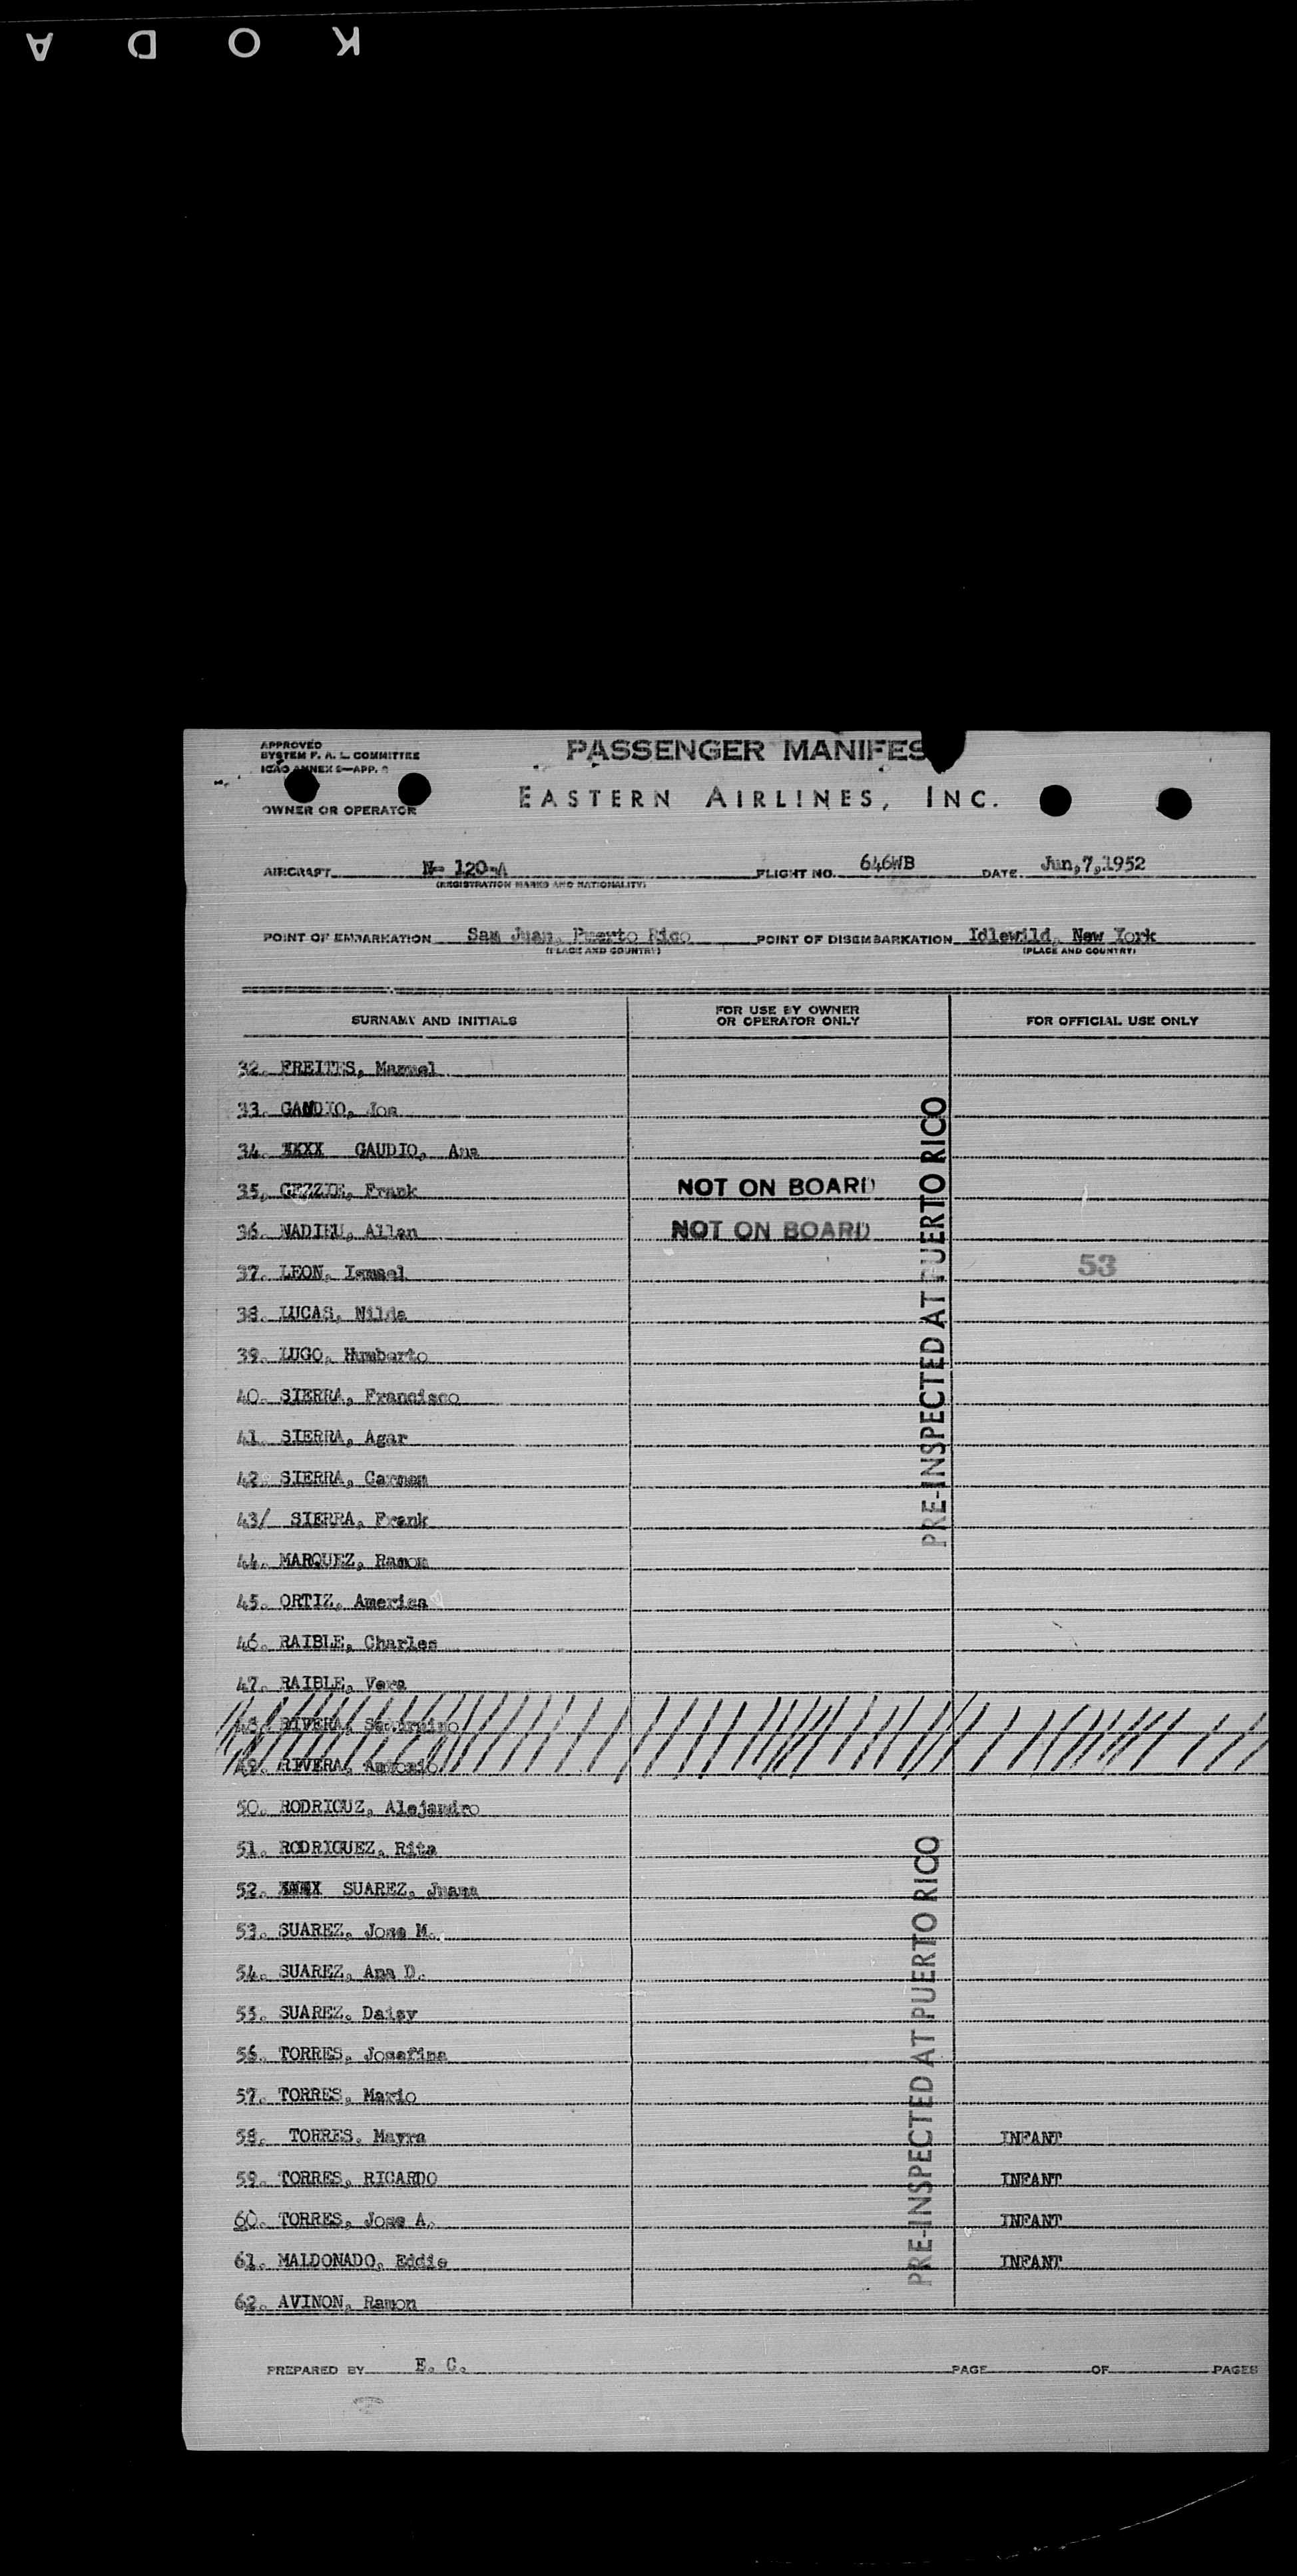 KODA
APPROVED
SYSTEM F. A. L. COMMITTEE
ICAO ANNEX 9—APP.
PASSENGER MANIFES
EASTERN AIRLINES, INC.
OWNER OR OPERATOR
AIRCRAFT N- 120-A FLIGHT NO. 646WB DATE Jun,7,1952
(REGISTRATION MARKS AND NATIONALITY)
POINT OF EMBARKATION San Juan, Puerto Rico POINT OF DISEMBARKATION Idlewild, New York
(PLACE AND COUNTRY) (PLACE AND COUNTRY)
SURNAME AND INITIALS FOR USE BY OWNER OR OPERATOR ONLY FOR OFFICIAL USE ONLY
32. FREITES, Manuel
33. GAUDIO, Joe
34. XXXX GAUDIO, Ana
35, GEZZIE, Frank NOT ON BOARD
36. NADIEU, Allan NOT ON BOARD
37. LEON, Ismael 53
38. LUCAS, Nilda
39. LUGO, Humberto
40. SIERRA, Francisco
41. SIERRA, Agar
42. SIERRA, Carmen
43/ SIERRA, Frank
44. MARQUEZ, Ramon
45. ORTIZ, America
46. RAIBLE, Charles
47. RAIBLE, Vera
48. RIVERA, Saturnino
49. RIVERA, Antonio
50. RODRIGUZ, Alejandro
51. RODRIGUEZ, Rita
52. XXXX SUAREZ, Juana
53. SUAREZ, Jose M.
54. SUAREZ, Ana D.
55. SUAREZ, Daisy
56. TORRES, Josefina
57. TORRES, Mario
58. TORRES, Mayra INFANT
59. TORRES, RICARDO INFANT
60. TORRES, Jose A. INFANT
61. MALDONADO, Eddie INFANT
62. AVINON, Ramon
PRE-INSPECTED AT PUERTO RICO
PRE-INSPECTED AT PUERTO RICO
PREPARED BY E. C. PAGE OF PAGES